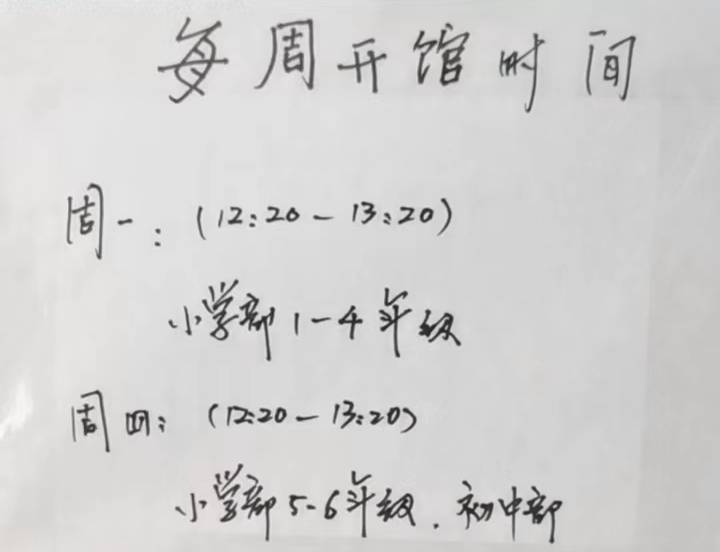 每周开馆时间
周一：（12:20-13:20）
小学部1-4年级
周四：（12:20-13:20）
小学部5-6年级．初中部